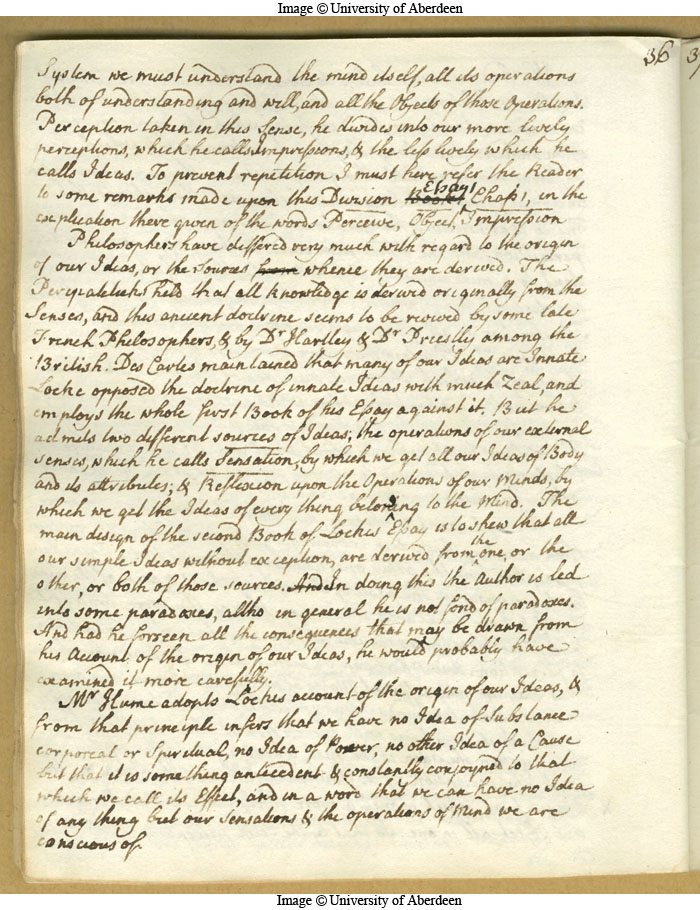 Image © University of Aberdeen
36
System we must understand the mind itself, all its operations
both of understanding and will, and all the Objects of those Operations.
Perception taken in this Sense, he divides into our more lively
perceptions, which he calls Impressions, & the less lively which he
calls Ideas. To prevent repetition I must here refer the Reader
Essay 1
to some remarks made upon this Division Book 1 Chap 1, in the
explication there given of the words Perceive, Object, Impression
Philosophers have differed very much with regard to the origin
of our Ideas, or the sources from whence they are derived. The
Peripateticks held that all knowledge is derived originally from the
Senses, and this ancient doctrine seems to be revived by some late
French Philosophers, & by Dr Hartley & Dr Priestly among the
British. Des Cartes maintained that many of our Ideas are Innate
Locke opposed the doctrine of innate Ideas with much Zeal, and
employs the whole first Book of his Essay against it. But he
admits two different sources of Ideas; the operations of our external
senses, which he calls Sensation, by which we get all our Ideas of Body
and its attributes; & Reflexion upon the Operations of our Minds, by
which we get the Ideas of every thing belonging to the Mind. The
main design of the second Book of Lockes Essay is to shew that all
our simple Ideas without exception, are derived from the one, or the
other, or both of those sources. And In doing this the Author is led
into some paradoxes, altho in general he is not fond of paradoxes.
And had he forseen all the consequences that may be drawn from
his Account of the origin of our Ideas, he would probably have
examined it more carefully.
Mr Hume adopts Lockes account of the origin of our Ideas, &
from that principle infers that we have no Idea of Substance
corporeal or Spiritual, no Idea of Power, no other Idea of a Cause
but that it is something antecedent & constantly conjoyned to that
which we call its Effect, and in a word that we can have no Idea
of any thing but our Sensations & the operations of Mind we are
conscious of.
Image © University of Aberdeen